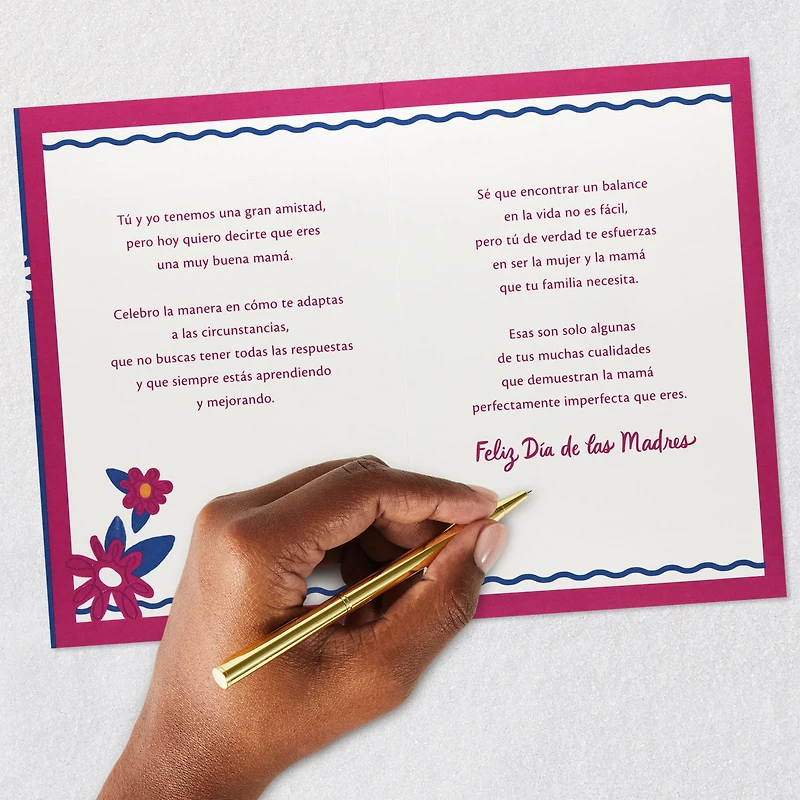 Tú y yo tenemos una gran amistad,
pero hoy quiero decirte que eres
una muy buena mamá.
Celebro la manera en cómo te adaptas
a las circunstancias,
que no buscas tener todas las respuestas
y que siempre estás aprendiendo
y mejorando.
Sé que encontrar un balance
en la vida no es fácil,
pero tú de verdad te esfuerzas
en ser la mujer y la mamá
que tu familia necesita.
Esas son solo algunas
de tus muchas cualidades
que demuestran la mamá
perfectamente imperfecta que eres.
Feliz Día de las Madres